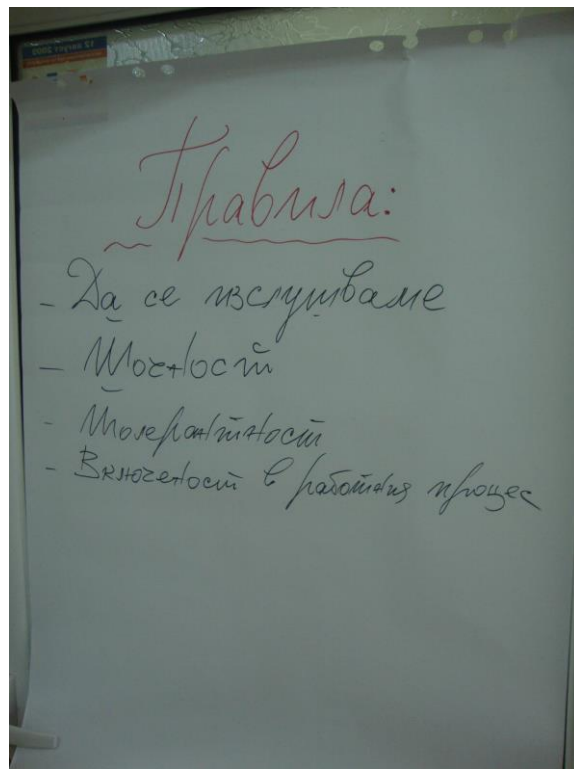 12 август 2009
Правила:
- Да се изслушваме
- Точност
- Толерантност
- Включеност в работния процес